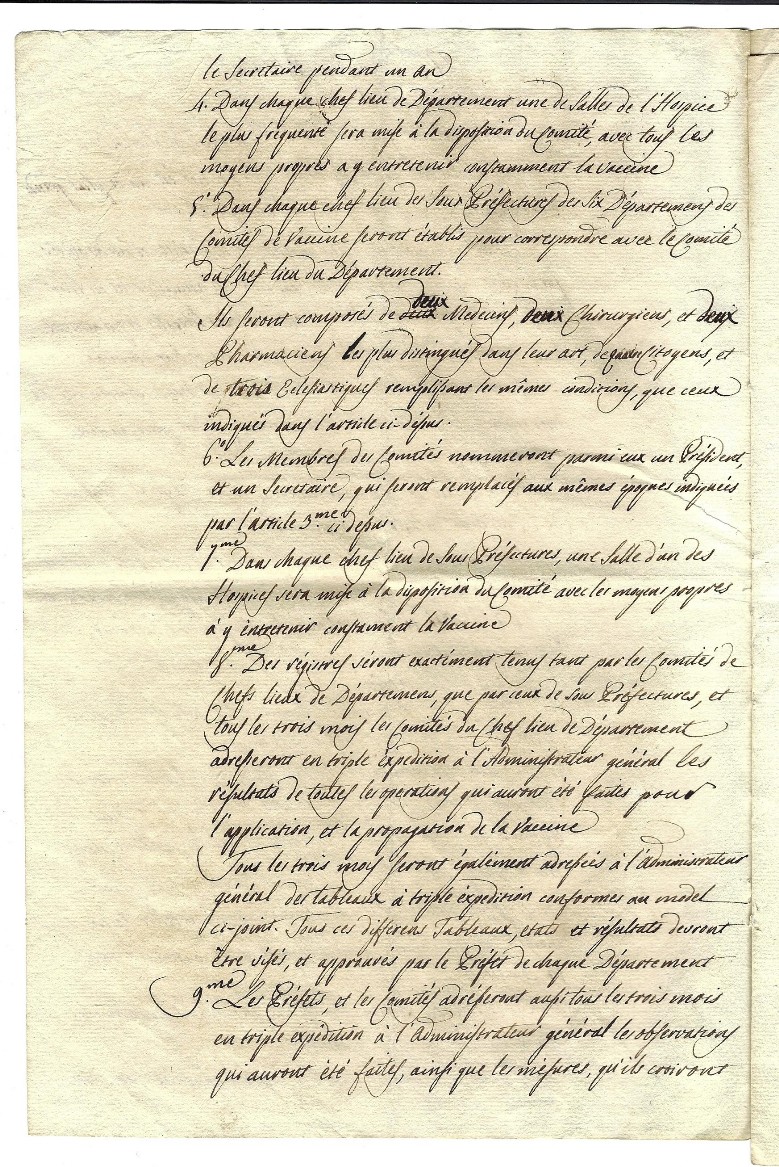 le Secretaire pendant un an
4. Dans chaque chef lieu de Département une de Salles de l'Hospice
le plus frequenté sera mise à la disposition du Comité, avec tous les
moyens propres a y entretenir constamment la vaccine
5.e Dans chaque chef lieu des Sous Préfectures des six Départemens des
Comités de Vaccine seront établis pour correspondre avec le Comité
du Chef lieu du Département.
Ils seront composés de deux Medecins, deux Chirurgiens, et deux
Pharmaciens les plus distingués dans leur art, de Citoyens, et
de trois Eclesiastiques remplissans les mêmes conditions, que ceux
indiqués dans l'article ci-dessus.
6.o Les Membres des Comités nommeront parmi eux un Président,
et un Secretaire, qui seront remplacés aux mêmes époques indiquées
par l'article 3.me ci dessus.
7.me Dans chaque chef lieu de Sous Préfectures, une Salle d'un des
Hospices sera mise à la disposition du Comité avec les moyens propres
à y entretenir constament la Vaccine
8.me Des régistres séront exactément tenus tant par les Comités de
Chefs lieux de Départemens, que par ceux de Sous Préfectures, et
tous les trois mois les Comités du Chef lieu de Département
adresseront en triple expedition à l'Administrateur général les
résultats de toutes les operations qui auront été faites pour
l'application, et la propagation de la Vaccine
Tous les trois mois seront également adressées à l'Administrateur
général des tableaux à triple expédition conformes au model
ci-joint. Tous ces differens Tableaux, etats et résultats devront
être visés, et approuvés par le Préfet de chaque Département
9.me Les Préfets, et les Comités adrésseront aussi tous les trois mois
en triple expédition à l'Administrateur général les observations
qui auront été faites, ainsi que les mésures, qu'ils croiront